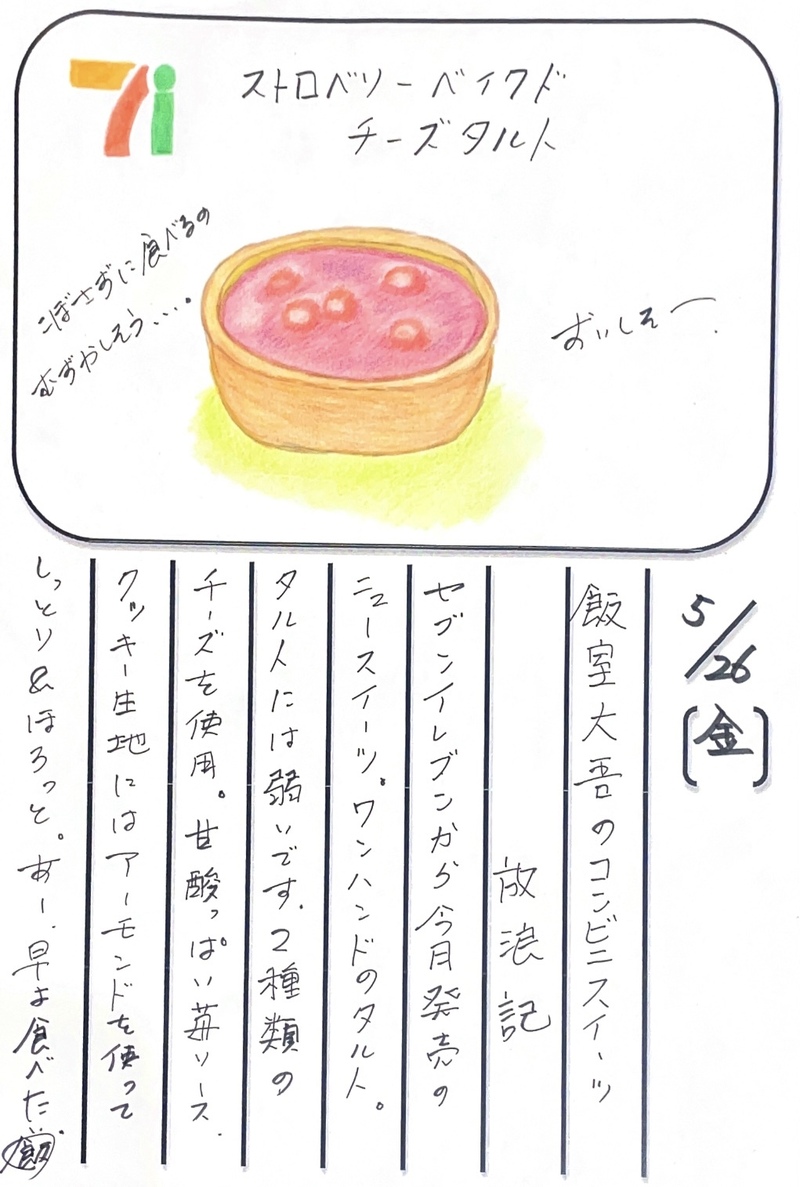 7i
ストロベリーベイクド
チーズタルト
こぼさずに食べるの
むずかしそう・・・。
おいしそー.
5/26
[金]
飯室大吾のコンビニスイーツ
放浪記
セブンイレブンから今月発売の
ニュースイーツ。ワンハンドのタルト。
タルトには弱いです。2種類の
チーズを使用。甘酸っぱい苺ソース.
クッキー生地にはアーモンドを使って
しっとり&ほろっと。あー.早よ食べた
飯